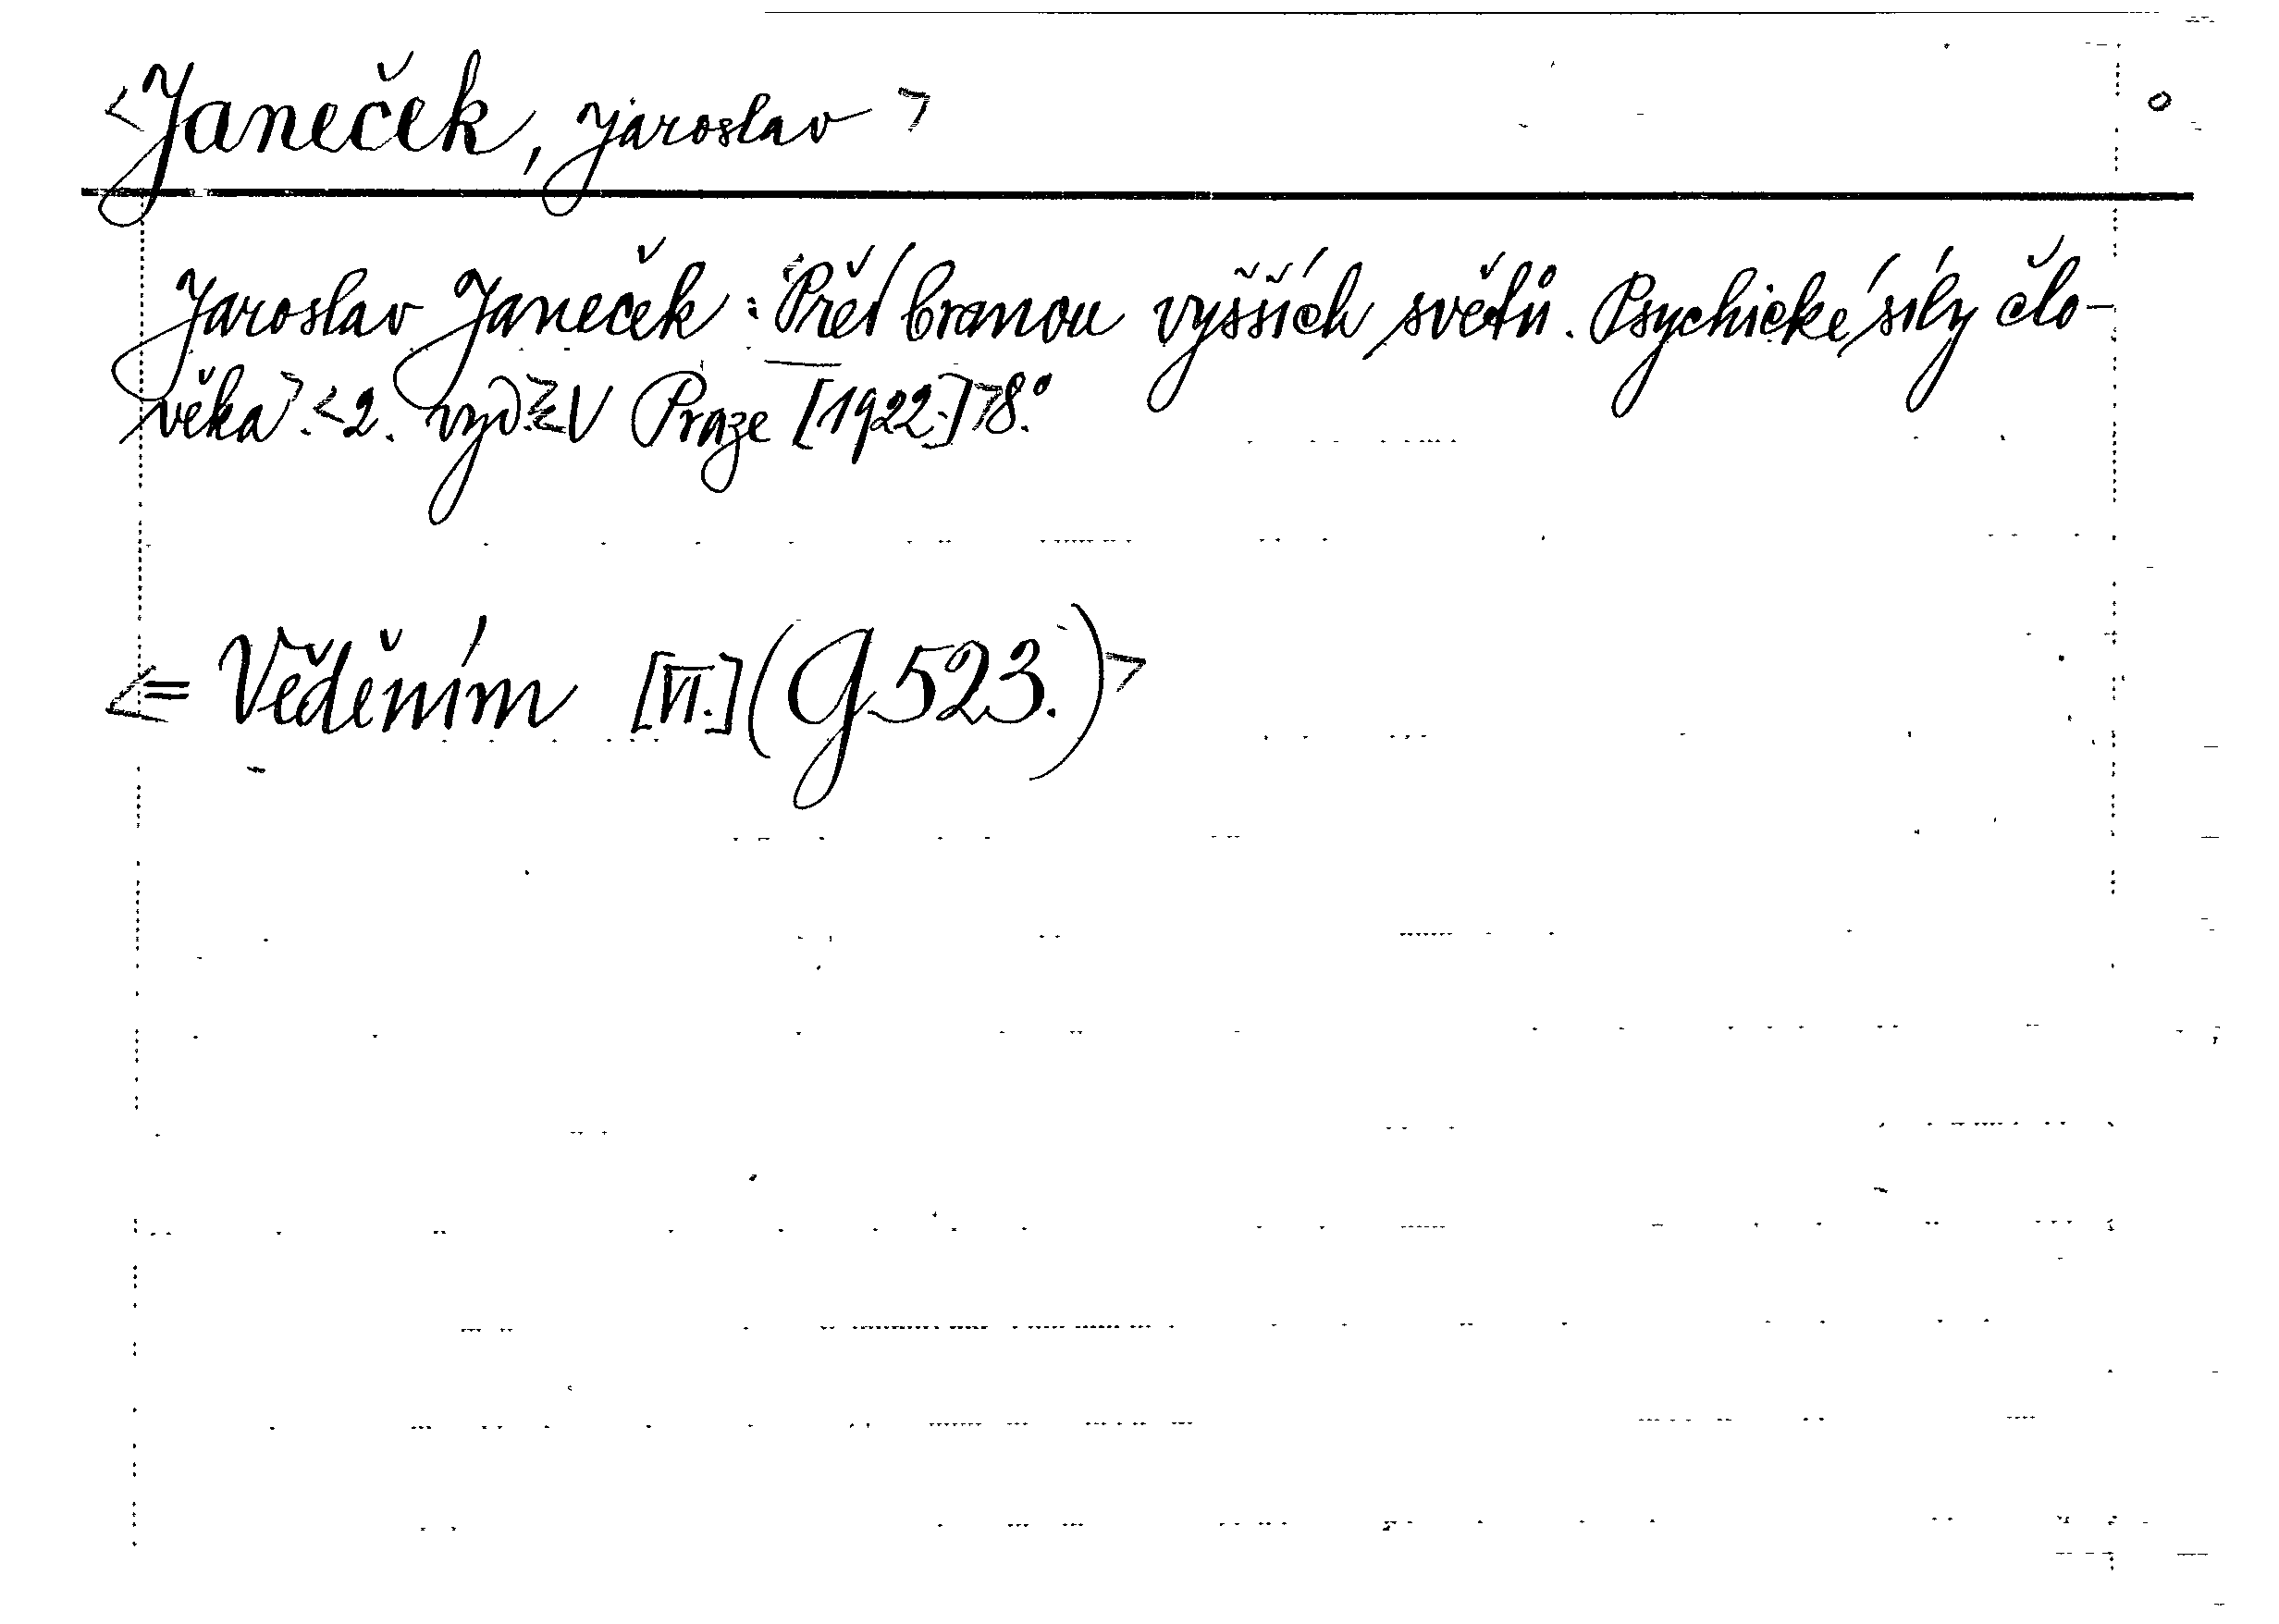 <Janeček, Jaroslav>
Jaroslav Janeček: Před branou vyšších světů. Psychické síly člo-
věka>. <2. vyd.> <V Praze [1922.]> 8.°
<= Věděním [VI.] (G 523.)>